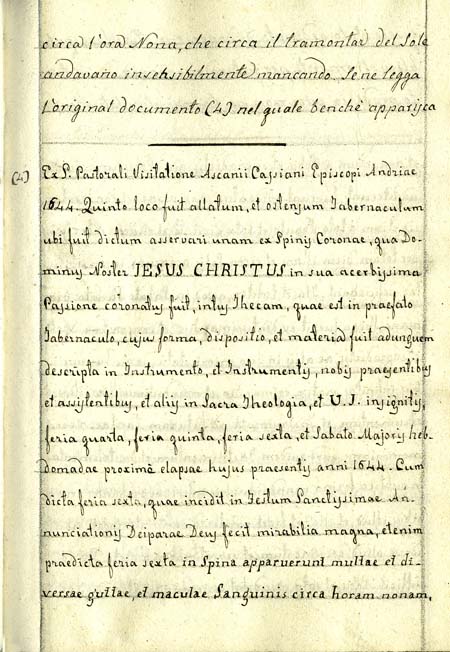 circa l'ora Nona, che circa il tramontar del Sole
andavano insensibilmente mancando. Se ne legga
l'original documento (4) nel quale benchè apparisca
(4) Ex S. Pastorali Visitatione Ascanii Cassiani Episcopi Andriae
1644. Quinto loco fuit allatum, et ostensum Tabernaculum
ubi fuit dictum asservari unam ex Spinis Coronae, qua Do-
minus Noster JESUS CHRISTUS in sua acerbissima
Passione coronatus fuit, intus Thecam, quae est in praefato
Tabernaculo, cujus forma, dispositio, et materia fuit adunguem
descripta in Instrumento, et Instrumentis, nobis praesentibus
et assistentibus, et aliis in Sacra Theologia, et U. J. insignitis,
feria quarta, feria quinta, feria sexta, et Sabato Majoris heb-
domadae proximè elapsae hujus praesentis anni 1644. Cum
dicta feria sexta, quae incidit in Festum Sanctissimae An-
nunciationis Deiparae Deus fecit mirabilia magna, etenim
praedicta feria sexta in Spina apparuerunt multae et di-
versae guttae, et maculae Sanguinis circa horam nonam,